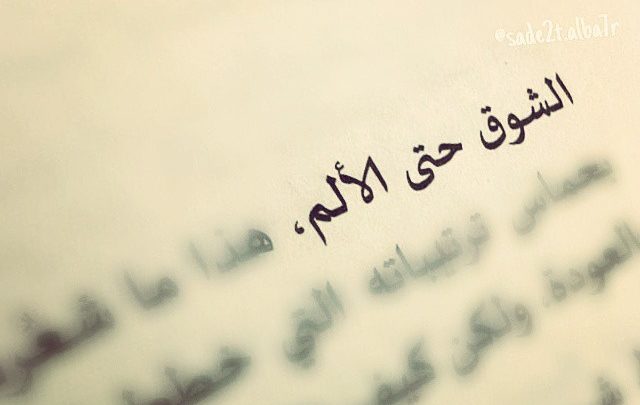 @sade2t.alba7r
الشوق حتى الألم، هذا ما
بحماس ترتيباته التي
العودة. ولكن كيف